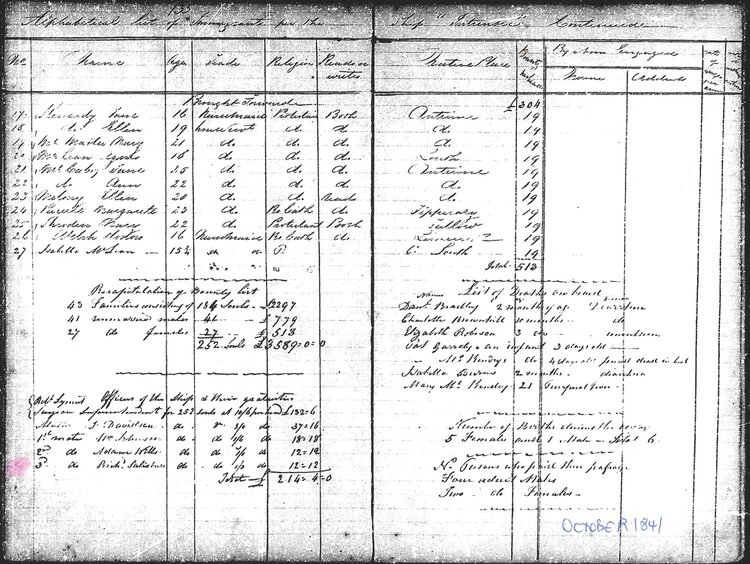 133
Alphabetical list of Immigrants per the Ship " " Continued
No. Name Age Trade Religion Reads or writes
Native Place By whom Engaged
Name Address
Brought Forward £304
17 Kennedy Jane 16 Nursemaid Protestant Both Antrim 19
18 do. Ellen 19 do. do. do. 19
19 Mc Master Mary 21 do. do. do. do. 19
20 Mc Lean 18 do. do. do. Louth 19
21 Jane 25 do. do. do. Antrim 19
22 do. Ann 22 do. do. do. do. 19
23 Ellen 20 do. do. reads do. 19
24 Margarette 23 do. Ro Cath do. Tipperary 19
25 22 do. Protestant Both 19
26 Welsh 16 Nursemaid Ro Cath do. 19
27 Isabella McLean 15½ P. Co South 19
Total 513
Recapitulation of Bounty list
43 Families consisting of 184 Souls £2297
41 unmarried males 41 £779
27 do females 27 £513
252 Souls £3589=0=0
List of Deaths on board
Name
Danl. Bradley 2 months Diarrhœa
Charlotte 10 months do
Elizabeth Robson 3
an infant 3 days old
Mc Hendry do 4 days old found dead in bed
Isabella 2 months diarrhœa
Mary Mc Hendry 21
Officers of the Ship & their gratuities
Surgeon Superintendent for 252 souls at 10/6 per head £132=6
Master J. Davidson do 3/0 do 37=16
1st mate Wm Johnson do do 1/6 do 18=18
2nd do Adam Wills do do 1/0 do 12=12
3d do Richd Salisbury do do 1/0 do 12=12
Total £ 214=4=0
Number of Births during the voyage
5 Females and 1 Male Total 6.
No Persons who paid their passage
Four adult Males
Two do Females
OCTOBER 1841